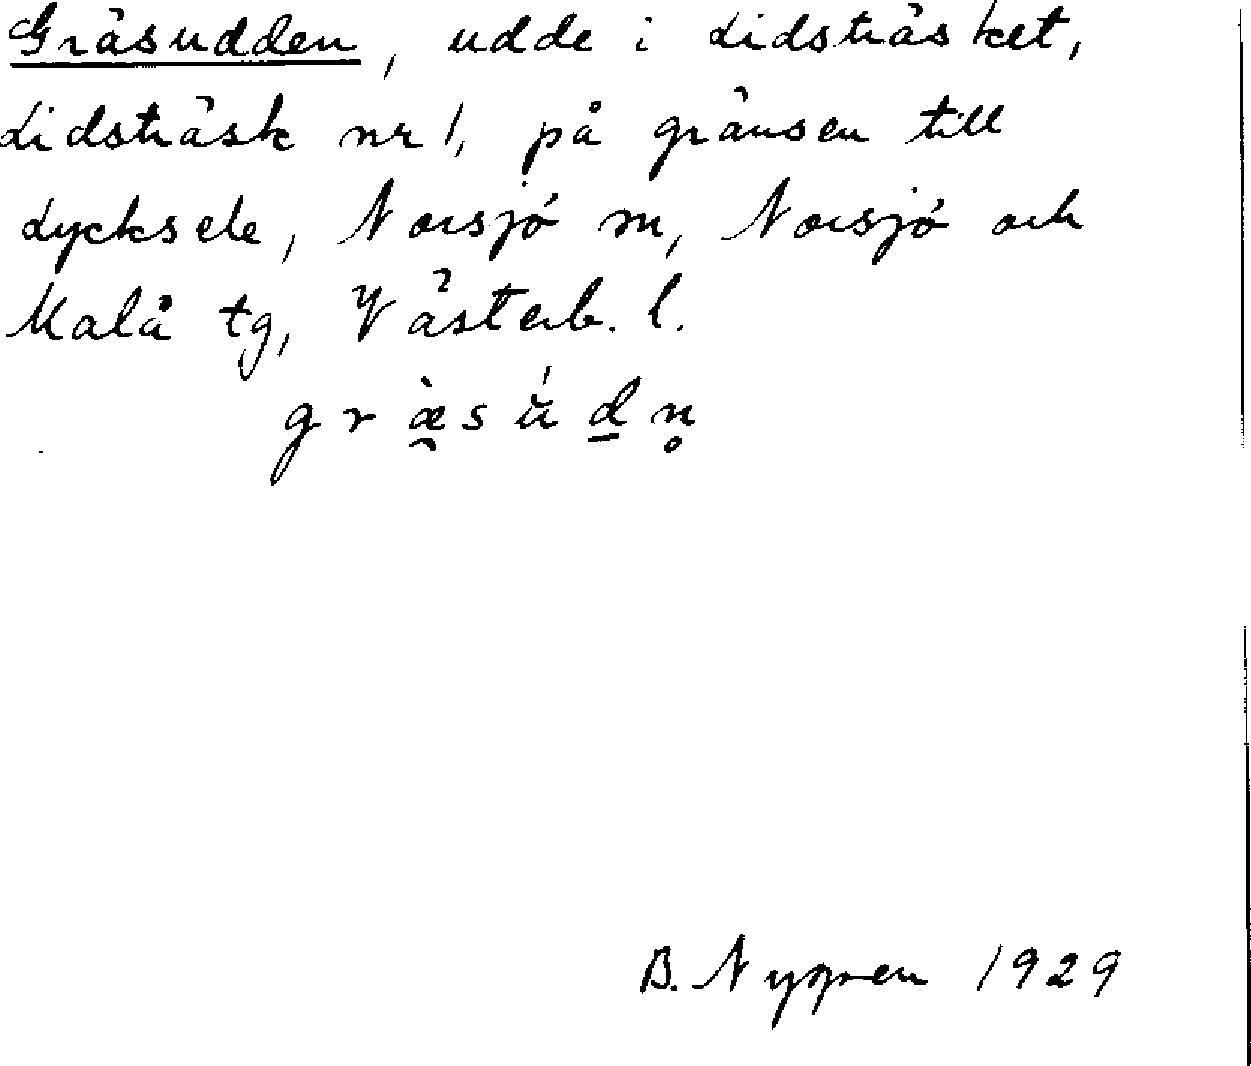 Gräsudden, udde i Lidsträsket,
Lidsträsk nr 1, på gränsen till
Lycksele, Norsjö sn, Norsjö och
Malå tg, Västerb. l.
g r æ̯̀ s ú̆ d̲ n̥
B. Nygren 1929